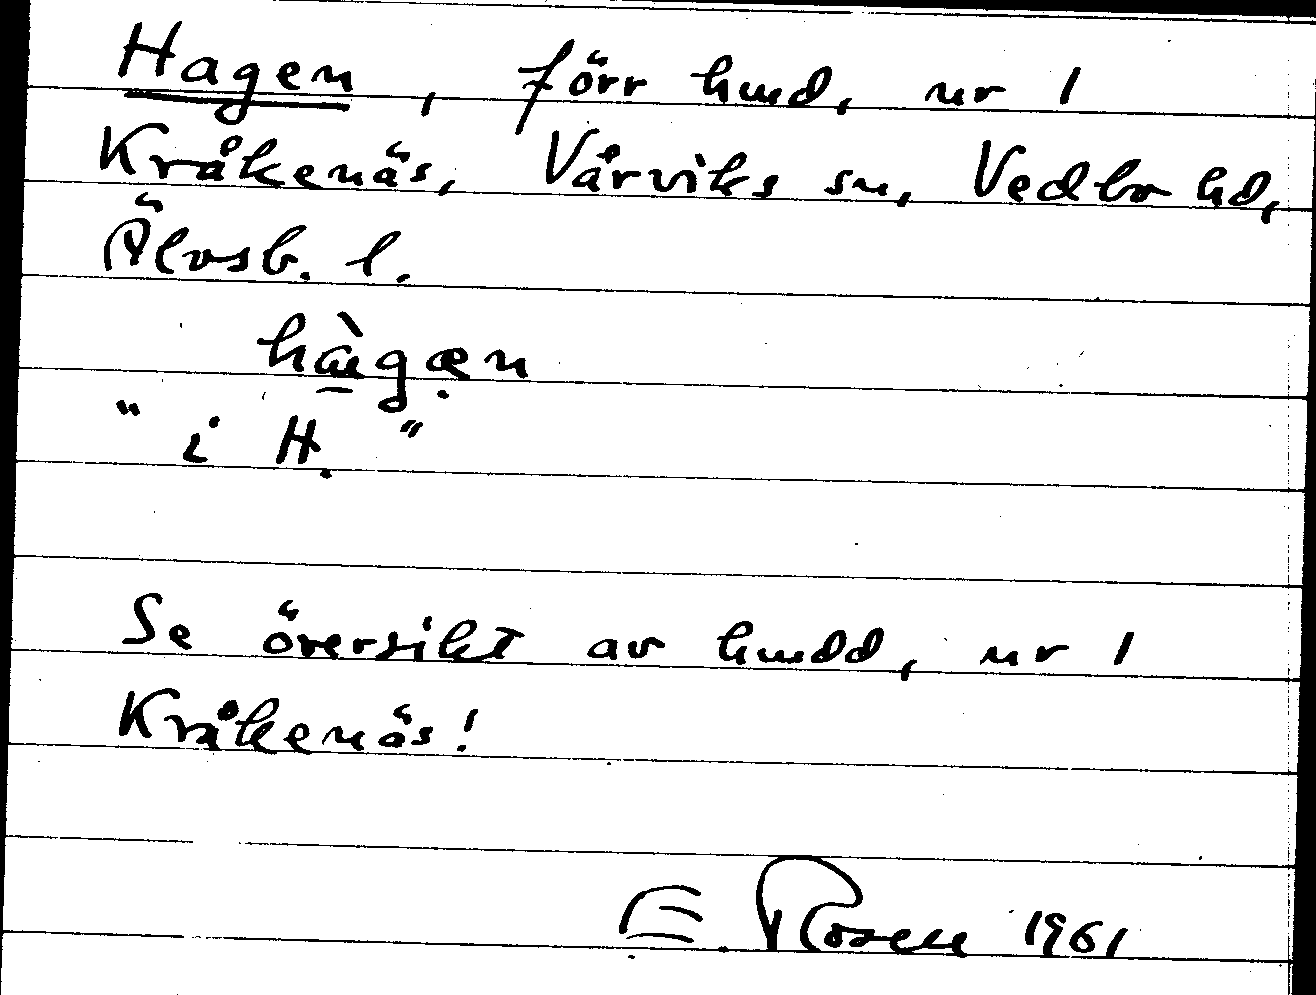 Hagen, förr hmd, nr 1
Kråkenäs, Vårviks sn, Vedbo hd,
Älvsb. l.
hàgæn
" i H. "
Se översikt av hmdd, nr 1
Kråkenäs!
E. Rosell 1961